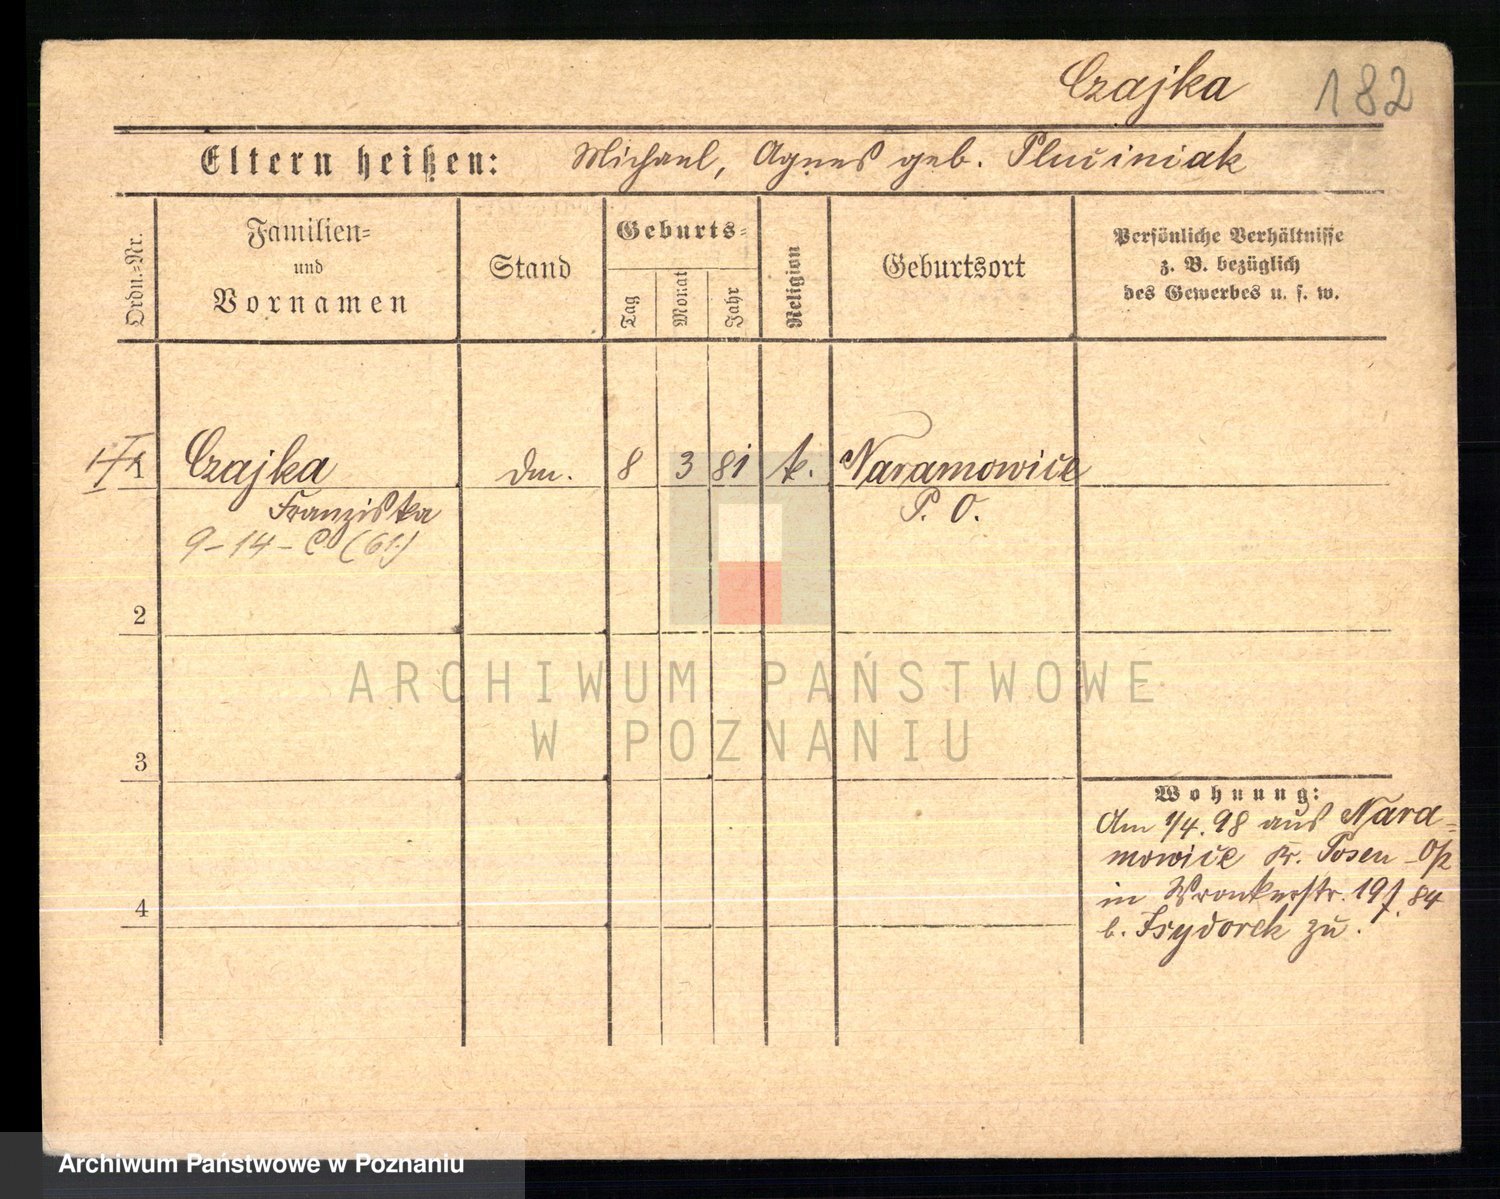 Czajka 182
Eltern heißen: Michael, Agnes geb. Pluciniak
Ordn.=Nr.
Familien=
und
Vornamen
Stand
Geburts=
Tag
Monat
Jahr
Religion
Geburtsort
Persönliche Verhältnisse
z. B. bezüglich
des Gewerbes u. s. w.
1 Czajka Dm. 8 3 81 k. Naramowice
Franziska P. O.
9-14-C (61)
2
3
4
Wohnung:
Am 1/4. 98 aus Nara=
mowice Kr. Posen -Op
in Wronkerstr. 19
b. Isydorek zu.
ARCHIWUM PAŃSTWOWE
W POZNANIU
Archiwum Państwowe w Poznaniu